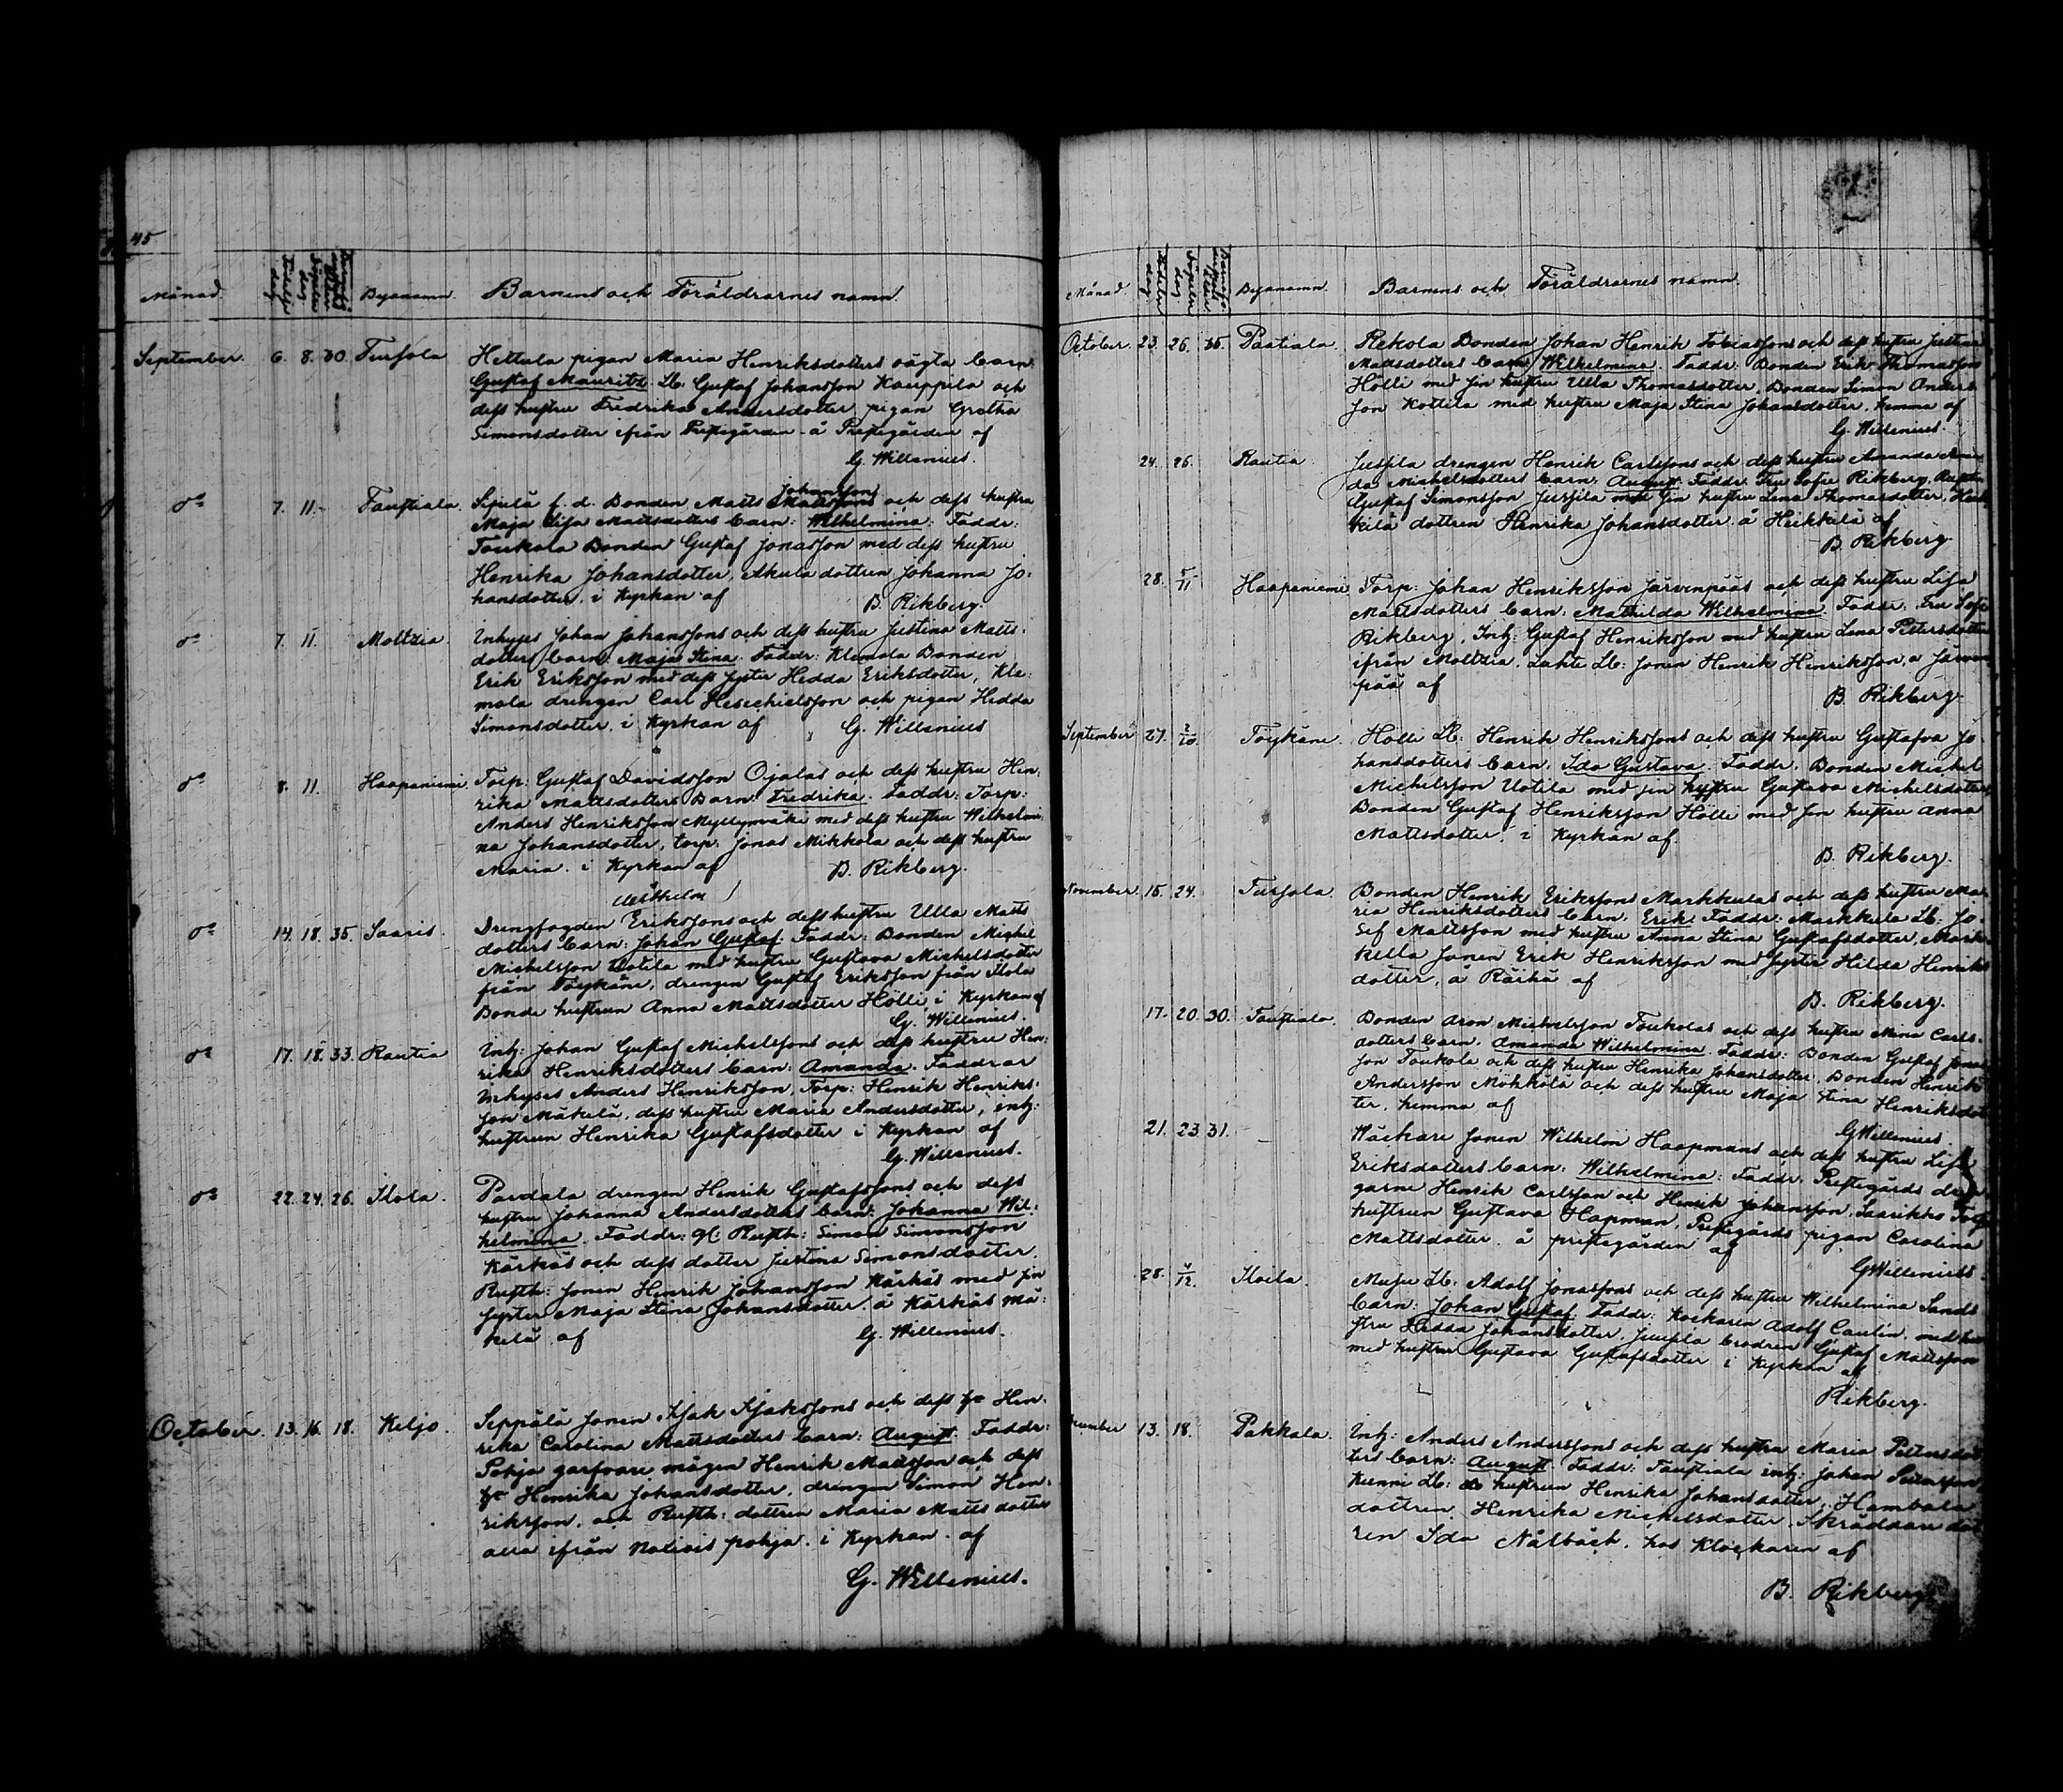 45
Månad. Födelse dag Döpelse dag Byanamn. Barnens och Föräldrarnes namn.
September. 6. 8. 30. Tursola Hettula pigan Maria Henriksdotters oägta barn
Gustaf Mauritz. Lb: Gustaf Johansson Kauppila och
dess hustru Fredrika Andersdotter, pigan Gretha
Simonsdotter ifrån Prestegården å Prestegården af
G. Willenius.
do 7. 11. Taustiala. Sipilä f. d. Bonden Matts Johanssons och dess hustru
Maja Lisa Mattsdotters barn: Wilhelmina. Faddr:
Toukola Bonden Gustaf Jonasson med dess hustru
Henrika Johansdotter, Akula dottren Johanna Jo-
hansdotter. i Kyrkan af B. Rikberg.
do 7. 11. Moltzia. Inhyses Johan Johanssons och dess hustru Justina Matts-
dotters barn: Maja Stina. Faddr: Klemola Bonden
Erik Eriksson med dess syster Hedda Eriksdotter, Kle-
mola drengen Carl Hesechielsson och pigan Hedda
Simonsdotter. i Kyrkan af G. Willenius
do 8. 11. Haapaniemi. Torp: Gustaf Davidsson Ojalas och dess hustru Hen-
rika Mattsdotters Barn: Fredrika. Faddr: Torp:
Anders Henriksson Myllymäki med dess hustru Wilhelmi-
na Johansdotter, torp: Jonas Mikkola och dess hustru
Maria. i Kyrkan af B. Rikberg.
do 14. 18. 35. Saaris. Drengfogden Erikssons och dess hustru Ulla Matts
dotters barn: Johan Gustaf. Faddr: Bonden Michel
Michelsson Uotila med hustru Gustava Michelsdotter
från Töykäne, drengen Gustaf Eriksson från Ilola
Bonde hustrun Anna Mattsdotter Hölli, i Kyrkan af
G. Willenius.
do 17. 18. 33. Rautia Inh: Johan Gustaf Michelssons och dess hustru Hen-
rika Henriksdotters barn: Amanda. Faddrar
Inhyses Anders Henriksson, Torp: Henrik Henriks-
son Mäkelä, dess hustru Maria Andersdotter, inh:
hustrun Henrika Gustafsdotter i Kyrkan af
G. Willenius.
do 22. 24. 26. Ilola. Pardala drengen Henrik Gustafssons och dess
hustru Johanna Andersdotters barn: Johanna Wil-
helmina. Faddr: Rusth: Simon Simonsson
Kärkäs och dess dotter Justina Simonsdotter.
Rusth: sonen Henrik Johansson Kärkäs med sin
syster Maja Stina Johansdotter. å Kärkäs Mä-
kelä af G. Willenius.
October. 13. 16. 18. Keljo. Seppälä sonen Isak Isakssons och dess Hen-
rika Carolina Mattsdotters barn: August. Faddr:
Pohja garfvare mågen Henrik Mattsson och dess
Henrika Johansdotter, drengen Simon Hen-
riksson, och Rusth: dottren Maria Mattsdotter
alla ifrån Nativis pohja. i Kyrkan. af
G. Willenius.
Månad. Födelse dag Döpelse dag Byanamn. Barnens och Föräldrarnes namn.
October. 23. 26. 35. Pastiala Rekola Bonden Johan Henrik Tobiassons och dess hustru Justina
Mattsdotters barn Wilhelmina. Faddr: Bonden Erik Thomasson
Hölli med sin hustru Ulla Thomasdotter, Bonden Simon Anders-
son Kottila med hustru Maja Stina Johansdotter, hemma af
G. Willenius.
24. 26. Rautia. Jussila drengen Henrik Carlssons och dess hustru Amanda
Michelsdotters barn: August. Faddr: Fru Sofie Rikberg,
Gustaf Simonsson Jussila med sin hustru Lena Thomasdotter, Heik-
kilä dottren Henrika Johansdotter. å Heikkilä af
B. Rikberg.
28. 5/11. Haapaniemi Torp: Johan Henriksson Järvenpääs och dess hustru Lisa
Mattsdotters barn: Mathilda Wilhelmina. Faddr: Fru Sofie
Rikberg, Inh: Gustaf Henriksson med hustru Lena Pettersdotter
ifrån Moltzia. Lb: sonen Henrik Henriksson, å Järven-
pää af B. Rikberg.
September 27. 2/10. Töykäne. Hölli Lb: Henrik Henrikssons och dess hustru Gustafva Jo-
hansdotters barn: Ida Gustava. Faddr: Bonden Michel
Michelsson Uotila med sin hustru Gustava Michelsdotter,
Bonden Gustaf Henriksson Hölli med sin hustru Anna
Mattsdotter. i Kyrkan af
B. Rikberg.
November. 15. 24. Tursola. Bonden Henrik Erikssons Markkulas och dess hustru Ma-
ria Henriksdotters barn: Erik. Faddr: Markkula Lb: Jo-
sef Mattsson med hustru Anna Stina Gustafsdotter, Mark-
kula sonen Erik Henriksson med syster Hilda Henriks-
dotter, å Räikä af
B. Rikberg.
17. 20. 30. Taustiala. Bonden Aron Michelsson Toukolas och dess hustru Mina Carls-
dotters barn: Amanda Wilhelmina. Faddr: Bonden Gustaf Jonas-
son Toukola och dess hustru Henrika Johansdotter, Bonden Henrik
Andersson Mökkölä och dess hustru Maja Stina Henriksdot-
ter, hemma af
G Willenius.
21. 23. 31. Wäckare sonen Wilhelm Haapmans och dess hustru Lisa
Eriksdotters barn: Wilhelmina. Faddr: Prestegårds dren-
garne Henrik Carlsson och Henrik Johansson, Saarikko
hustrun Gustava Hapman, Prestegårds pigan Carolina
Mattsdotter. å prestegården af
G Willenius.
28. 4/12. Iloila. Lb: Adolf Jonassons och dess hustru Wilhelmina
barn: Johan Gustaf. Faddr: Kockaren Adolf Caulin, med hu-
stru Hedda Johansdotter, Jussila brodren Gustaf Mattsson
med hustru Gustava Gustafsdotter i Kyrkan af
Rikberg.
December 13. 18. Pakkala. Inh: Anders Anderssons och dess hustru Maria Pettersdot-
ters barn: August. Faddr: Taustiala inh: Johan Petersson
Kunni Lb: hustrun Henrika Johansdotter, Hambala
dottren Henrika Michelsdotter, Skräddare dot-
ren Ida Nålbäck. hos Klockaren af
B. Rikberg.